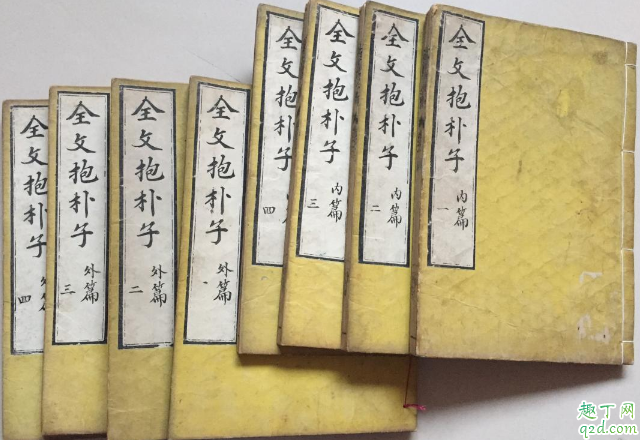 全文抱朴子 内篇 一
全文抱朴子 内篇 二
全文抱朴子 内篇 三
全文抱朴子 内篇 四
全文抱朴子 外篇
全文抱朴子 外篇 二
全文抱朴子 外篇 三
全文抱朴子 外篇 四
趣丁网
q2d.com